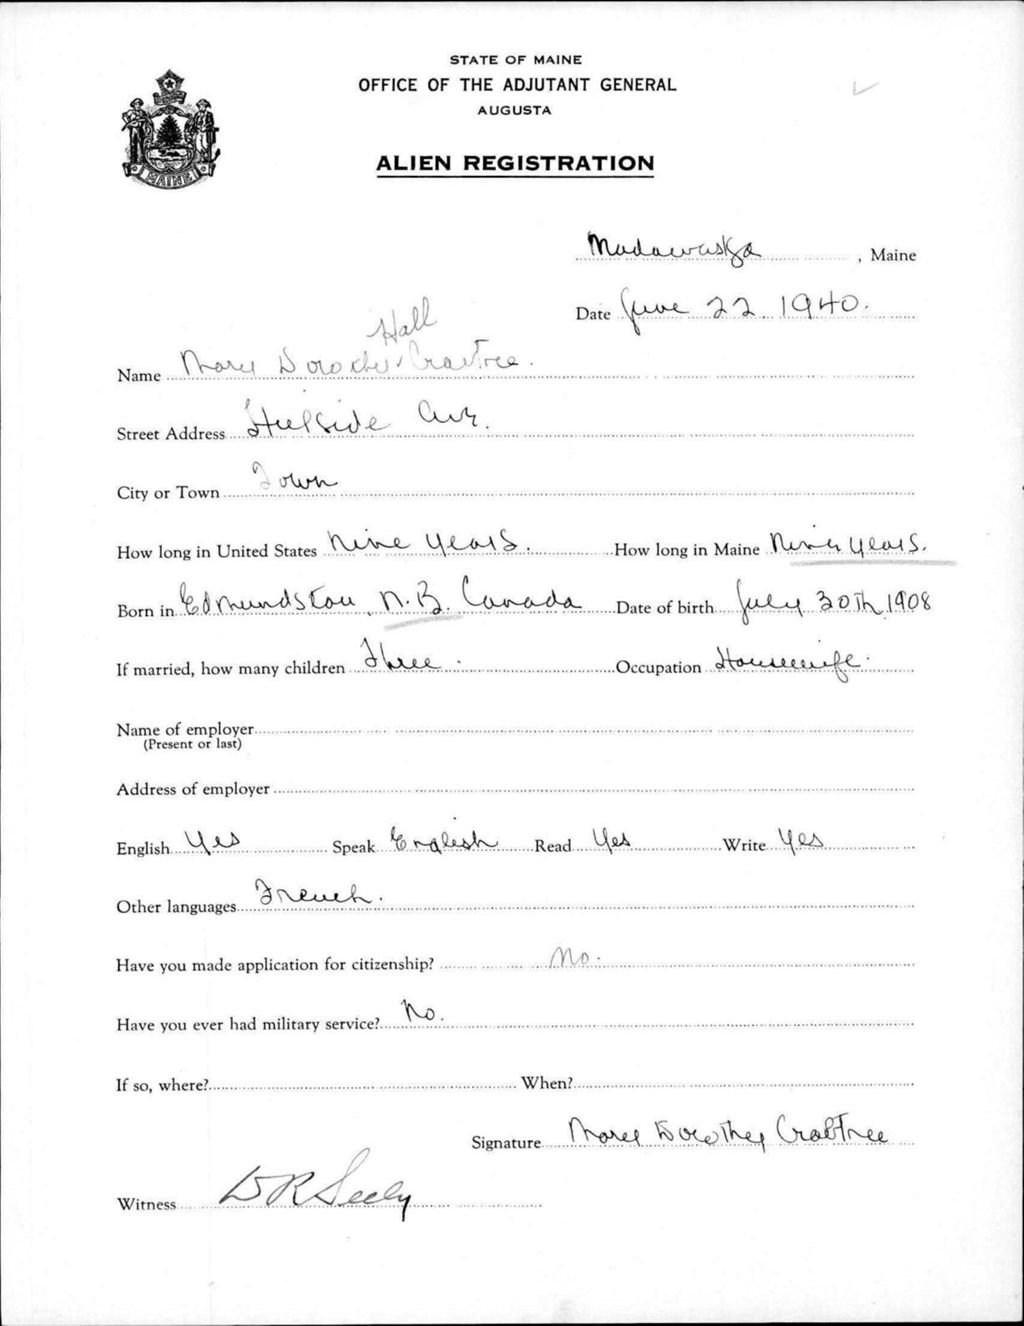 STATE OF MAINE
OFFICE OF THE ADJUTANT GENERAL
AUGUSTA
ALIEN REGISTRATION
MAINE
Madawaska, Maine
Date June 22 1940.
Hall
Name Mary Dorothy Crabtree.
Street Address Hillside Ave.
City or Town Town
How long in United States Nine Years. How long in Maine Nine Years.
Born in Edmundston, N.B. Canada Date of birth July 30th, 1908
If married, how many children Three. Occupation Housewife.
Name of employer
(Present or last)
Address of employer
English Yes Speak English Read Yes Write Yes
Other languages French.
Have you made application for citizenship? No.
Have you ever had military service? No.
If so, where? When?
Signature Mary Dorothy Crabtree
Witness D R Seely